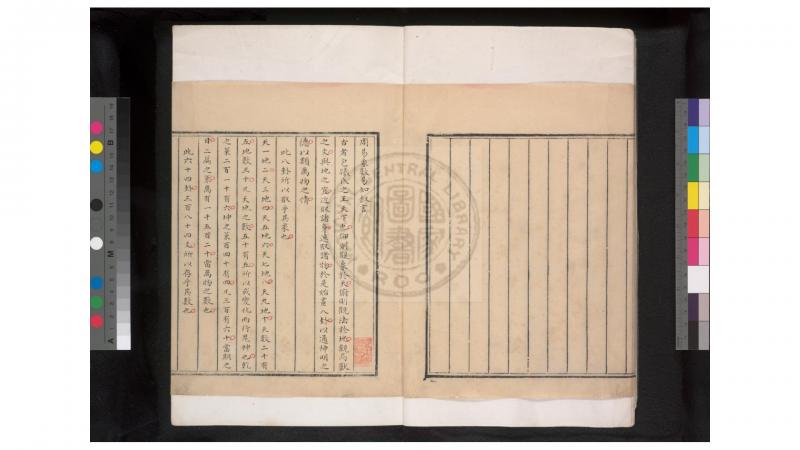 周易象數易知敘言
古者包犧氏之王天下也仰則觀象於天俯則觀法於地觀鳥獸
之文與地之宜近取諸身遠取諸物於是始畫八卦以通神明之
德以類萬物之情
此八卦所以取乎其象也
天一地二天三地四天五地六天七地八天九地十天數二十有
五地數三十凡天地之數五十有五所以成變化而行鬼神也乾
之策二百一十有六坤之策百四十有四凡三百有六十當期之
日二篇之策萬有一千五百二十當萬物之數也
此六十四卦三百八十四爻所以存乎其數也
國家圖書館
CENTRAL LIBRARY
ROC